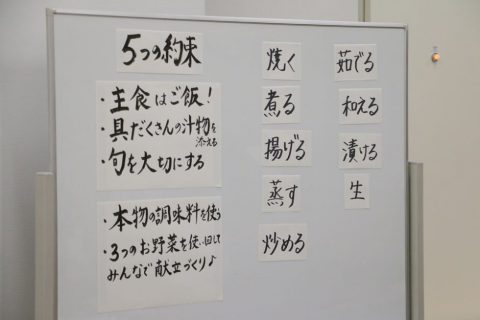 5つの約束
・主食はご飯!
・具だくさんの汁物を添える
・旬を大切にする
・本物の調味料を使う
・3つのお野菜を使い回して
みんなで献立づくり♪
焼く
煮る
揚げる
蒸す
炒める
茹でる
和える
漬ける
生